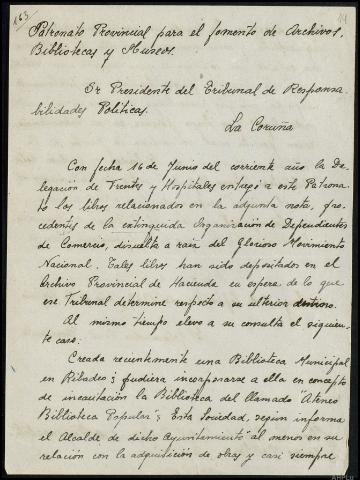 163
14
Patronato Provincial para el fomento de Archivos,
Bibliotecas y Museos.
Sr Presidente del Tribunal de Responsa-
bilidades Políticas.
La Coruña
Con fecha 16 de Junio del corriente año la De-
legación de Frentes y Hospitales entregó a este Patrona-
to los libros relacionados en la adjunta nota, pro-
cedentes de la extinguida Organización de Dependientes
de Comercio, disuelta a raíz del Glorioso Movimiento
Nacional. Tales libros han sido depositados en el
Archivo Provincial de Hacienda en espera de lo que
ese Tribunal determine respecto a su ulterior destino.
Al mismo tiempo elevo a su consulta el siguien-
te caso:
Creada recientemente una Biblioteca Municipal
en Ribadeo ¿pudiera incorporarse a ella en concepto
de incautación la Biblioteca del llamado "Ateneo
Biblioteca Popular"? Esta Sociedad, según informa
el Alcalde de dicho Ayuntamiento "al menos en su
relación con la adquisición de obras y casi siempre